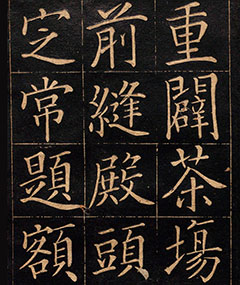 重闢茶場
前縫殿頭
㝎常題額